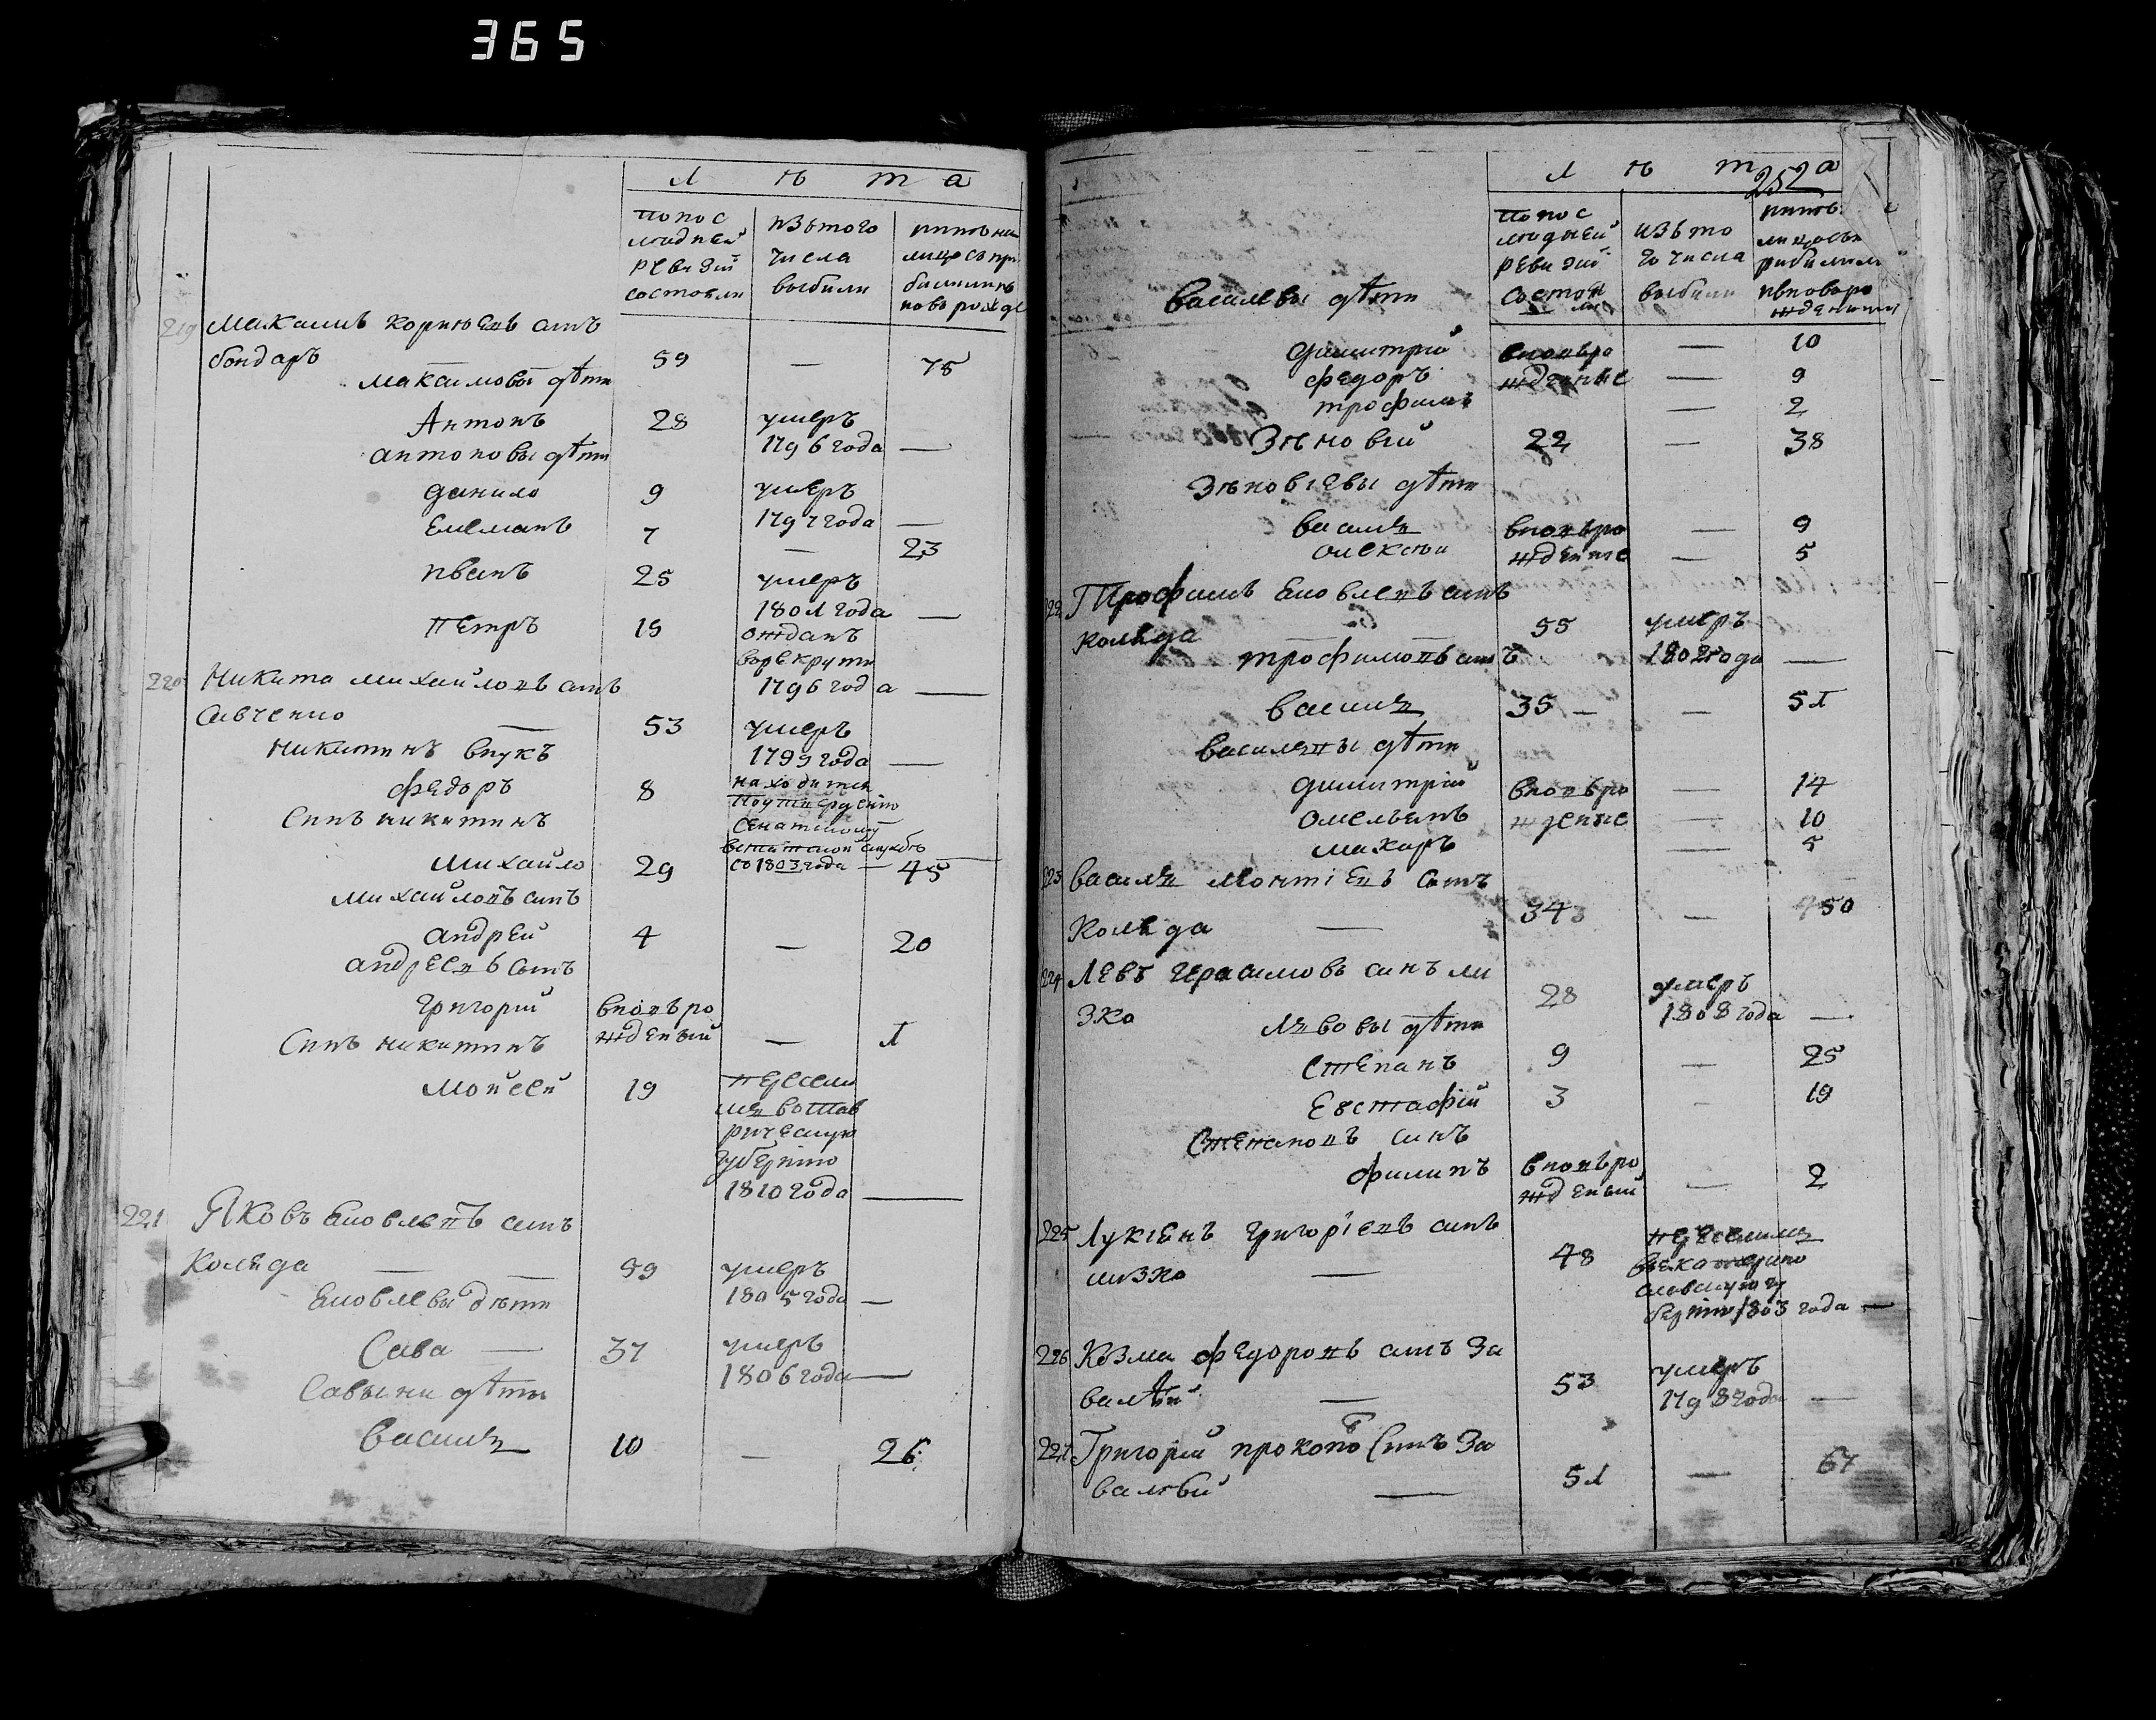 365
Л ѣ т а
по пос
ледней
ревизий
состояли
изътого
числа
выбили
ниновна
лицосъпри
билимиъ
новь рожде
219 Максимъ корнѣевъ синъ
бондаръ 59 — 75
максимовы дѣти
Антонъ 28 умеръ
1796 года —
антоновы дѣти
данило 9 умеръ
1797 года —
Емельанъ 7 — 23
иванъ 25 умеръ
1801 года —
Петръ 19 отданъ
ворекрути
1796 года —
220 Никита михайловъ синъ
Савченко — 53 умеръ
1799 года —
никитинъ внукъ
федоръ 8 находится
Синъ никитинъ
Сенатскому
михайло 29 со 1803 года — 45
михайловъ синъ
андрей 4 — 20
андреевъ синъ
григорий вновъро
жденый — 1
Синъ никитинъ
мойсей 19 пересели
лся вотав
рическую
губернию
1810 года —
221 Яковъ яковлевъ синъ
Коляда — 59 умеръ
1805 года —
яковлевы дѣти
Сава — 37 умеръ
1806 года —
Савыни дѣти
василь 10 — 26
252
Л ѣ т а
по пос
ледней
ревизий
состоя
ли
изъто
го числа
выбили
нинов
лицосъп
рибилими
ивновьро
жденими
василевы дѣти
димитрій вновьро — 10
федоръ жденные — 9
трофимъ — 2
Зѣновій 22 — 38
Зѣновіевы дѣти
василь вновьро — 9
олексѣй жденные — 5
222 Трофимъ яковлевъ синъ
коляда 55 умеръ
1802 года —
трофимовъ синъ
василь 35 — — 51
василевы дѣти
димитрій вновьро — 14
омельянъ жденые — 10
макаръ — 5
223 василь монтіевъ синъ
Коляда — 34 — 50
224 Левъ герасимовъ синъ ли
зко 28 умеръ
1808 года —
Лвовы дѣти
Степанъ 9 — 25
Евстафій 3 — 19
Степановъ синъ
филипъ вновьро
жденый — 2
225 Лукіянъ григоріевъ синъ
лизко — 48 переселился
векатерино
славскую гу
бернию 1803 года —
226 Козма федоровъ синъ За
валѣй — 53 умеръ
1798 года —
227 Григорій прокопов Синъ За
валѣй — 51 — 67